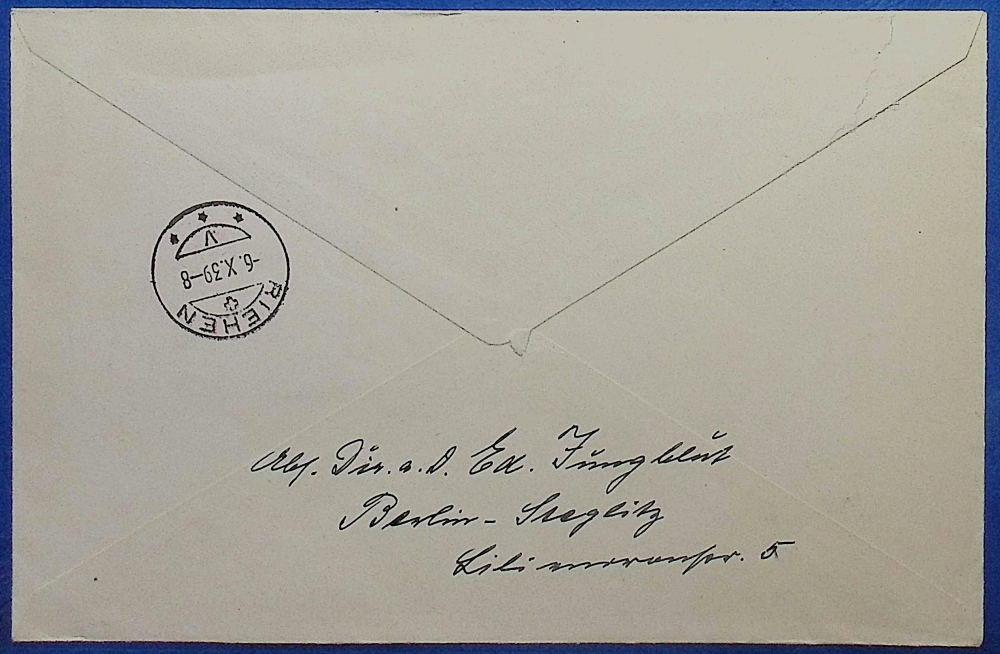 RIEHEN
-6.X.39-8
V
Abs. Dir. a. D. Ed. Jungblut
Berlin - Steglitz
Liliencronstr. 5